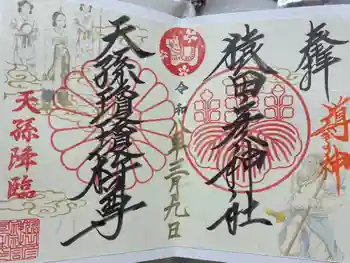 奉拝
導神
猿田彦神社
令和八年三月九日
天孫瓊瓊杵尊
天孫降臨